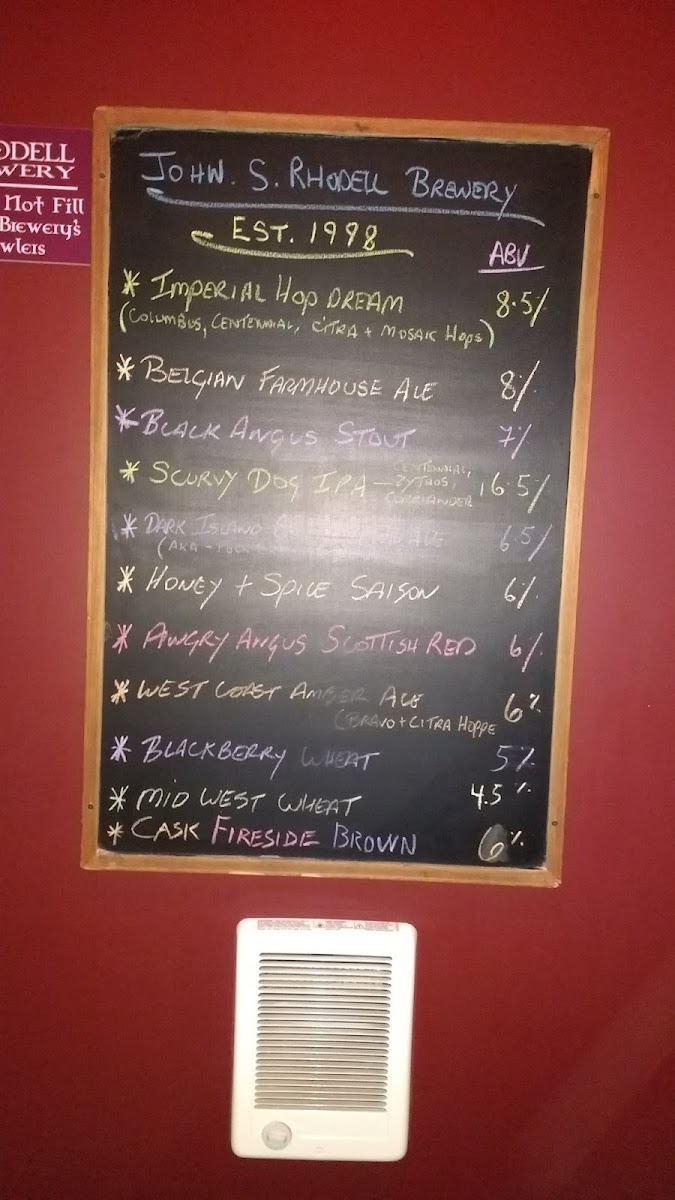 ODELL
WERY
Not Fill
Brewery's
wlers
JOHN. S. RHODELL BREWERY
EST. 1998
ABV
* IMPERIAL HOP DREAM 8.5%
(COLUMBUS, CENTENNIAL, CITRA + MOSAIK HOPS)
* BELGIAN FARMHOUSE ALE 8%
* BLACK ANGUS STOUT 7%
* SCURVY DOG IPA — CENTENNIAL, 6.5%
ZYTHOS,
CORRIANDER
* DARK ISLAND ALE 6.5%
(AKA -
* HONEY + SPICE SAISON 6%
* ANGRY ANGUS SCOTTISH RED 6%
* WEST COAST AMBER ALE 6%
(BRAVO + CITRA HOPPE
* BLACKBERRY WHEAT 5%
* MID WEST WHEAT 4.5%
* CASK FIRESIDE BROWN 6%